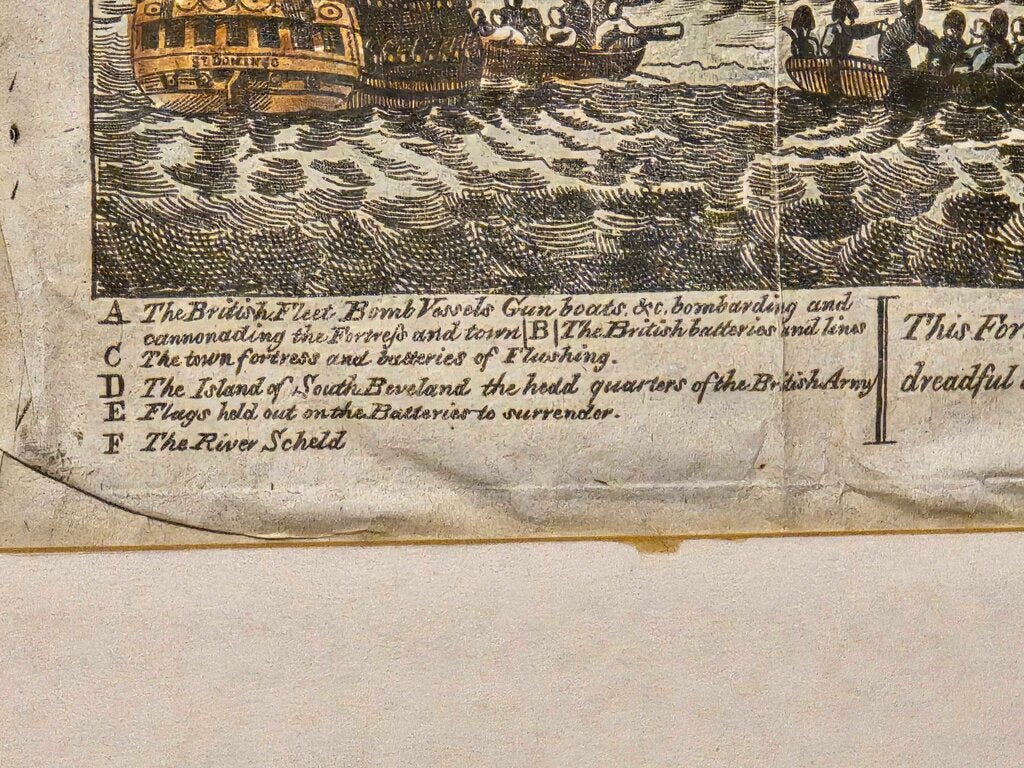 ST DOMINGO
A The British Fleet, Bomb Vessels Gun boats, &c. bombarding and
cannonading the Fortreſs and town | B | The British batteries and lines
C The town fortress and batteries of Flushing.
D The Island of South Beveland the head quarters of the British Army
E Flags held out on the Batteries to surrender.
F The River Scheld
This For
dreadful